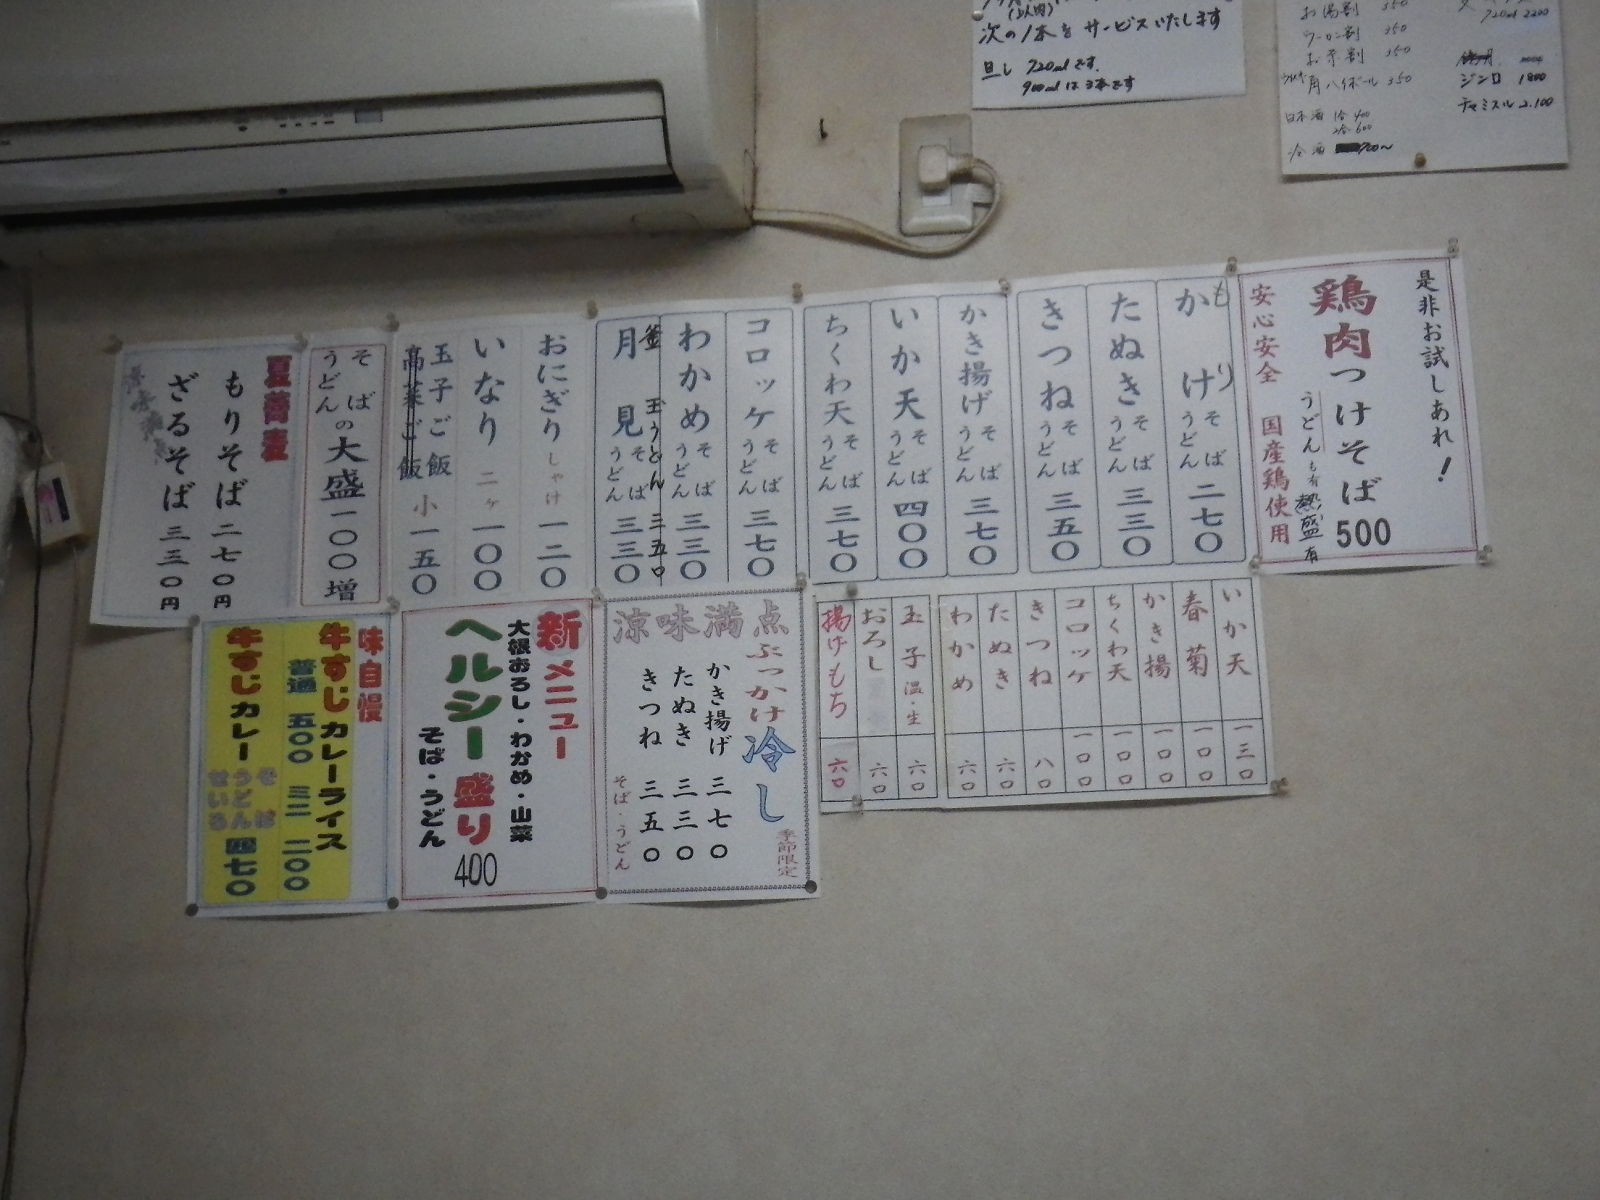 次の1本をサービスいたします
旦し 720mlです。
900mlは3本です
お湯割 350
ウーロン割 350
お茶割 350
角ハイボール 350
日本酒 1合 400
2合 600
冷酒 900〜
720ml 2200
ジンロ 1800
チャミスル 2.100
是非お試しあれ!
鶏肉つけそば 500
うどんも有 熱盛有
安心安全 国産鶏使用
かけ もり そば うどん 二七〇
たぬき そば うどん 三三〇
きつね そば うどん 三五〇
かき揚げ そば うどん 三七〇
いか天 そば うどん 四〇〇
ちくわ天 そば うどん 三七〇
コロッケ そば うどん 三七〇
わかめ そば うどん 三三〇
釜玉うどん 三五〇
月見 そば うどん 三三〇
おにぎり しゃけ 一二〇
いなり 二ヶ 一〇〇
玉子ご飯
高菜ご飯 小 一五〇
そば うどん の大盛 一〇〇増
夏蕎麦
もりそば 二七〇円
ざるそば 三三〇円
いか天 一三〇
春菊 一一〇
かき揚 一一〇
ちくわ天 一一〇
コロッケ 一〇〇
きつね 八〇
たぬき 六〇
わかめ 六〇
玉子 温・生 六〇
おろし 六〇
揚げもち 六〇
涼味満点
ぶっかけ冷し 季節限定
かき揚げ 三七〇
たぬき 三三〇
きつね 三五〇
そば・うどん
新メニュー
大根おろし・わかめ・山菜
ヘルシー盛り 400
そば・うどん
味自慢
牛すじカレーライス
普通 五〇〇 ミニ 二〇〇
牛すじカレー そば うどん せいろ 四七〇